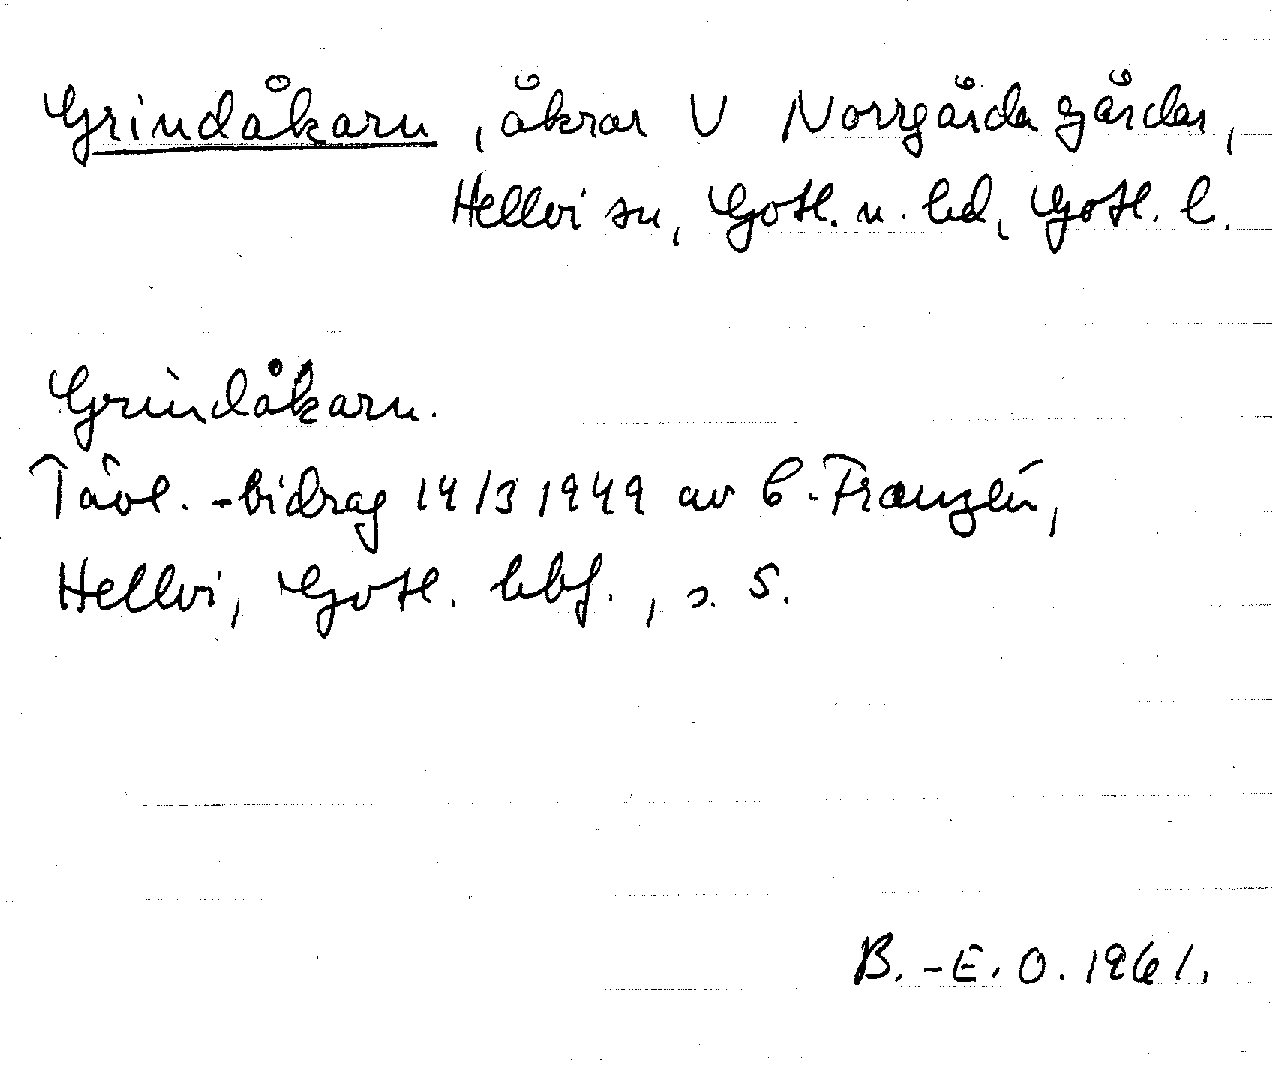 Grindåkarn, åkrar V Norrgårda gårdar,
Hellvi sn, Gotl. n. hd, Gotl. l.
Grindåkarn.
Tävl. -bidrag 14/3 1949 av C. Franzén,
Hellvi, Gotl. hbf., s. 5.
B.-E. O. 1961.